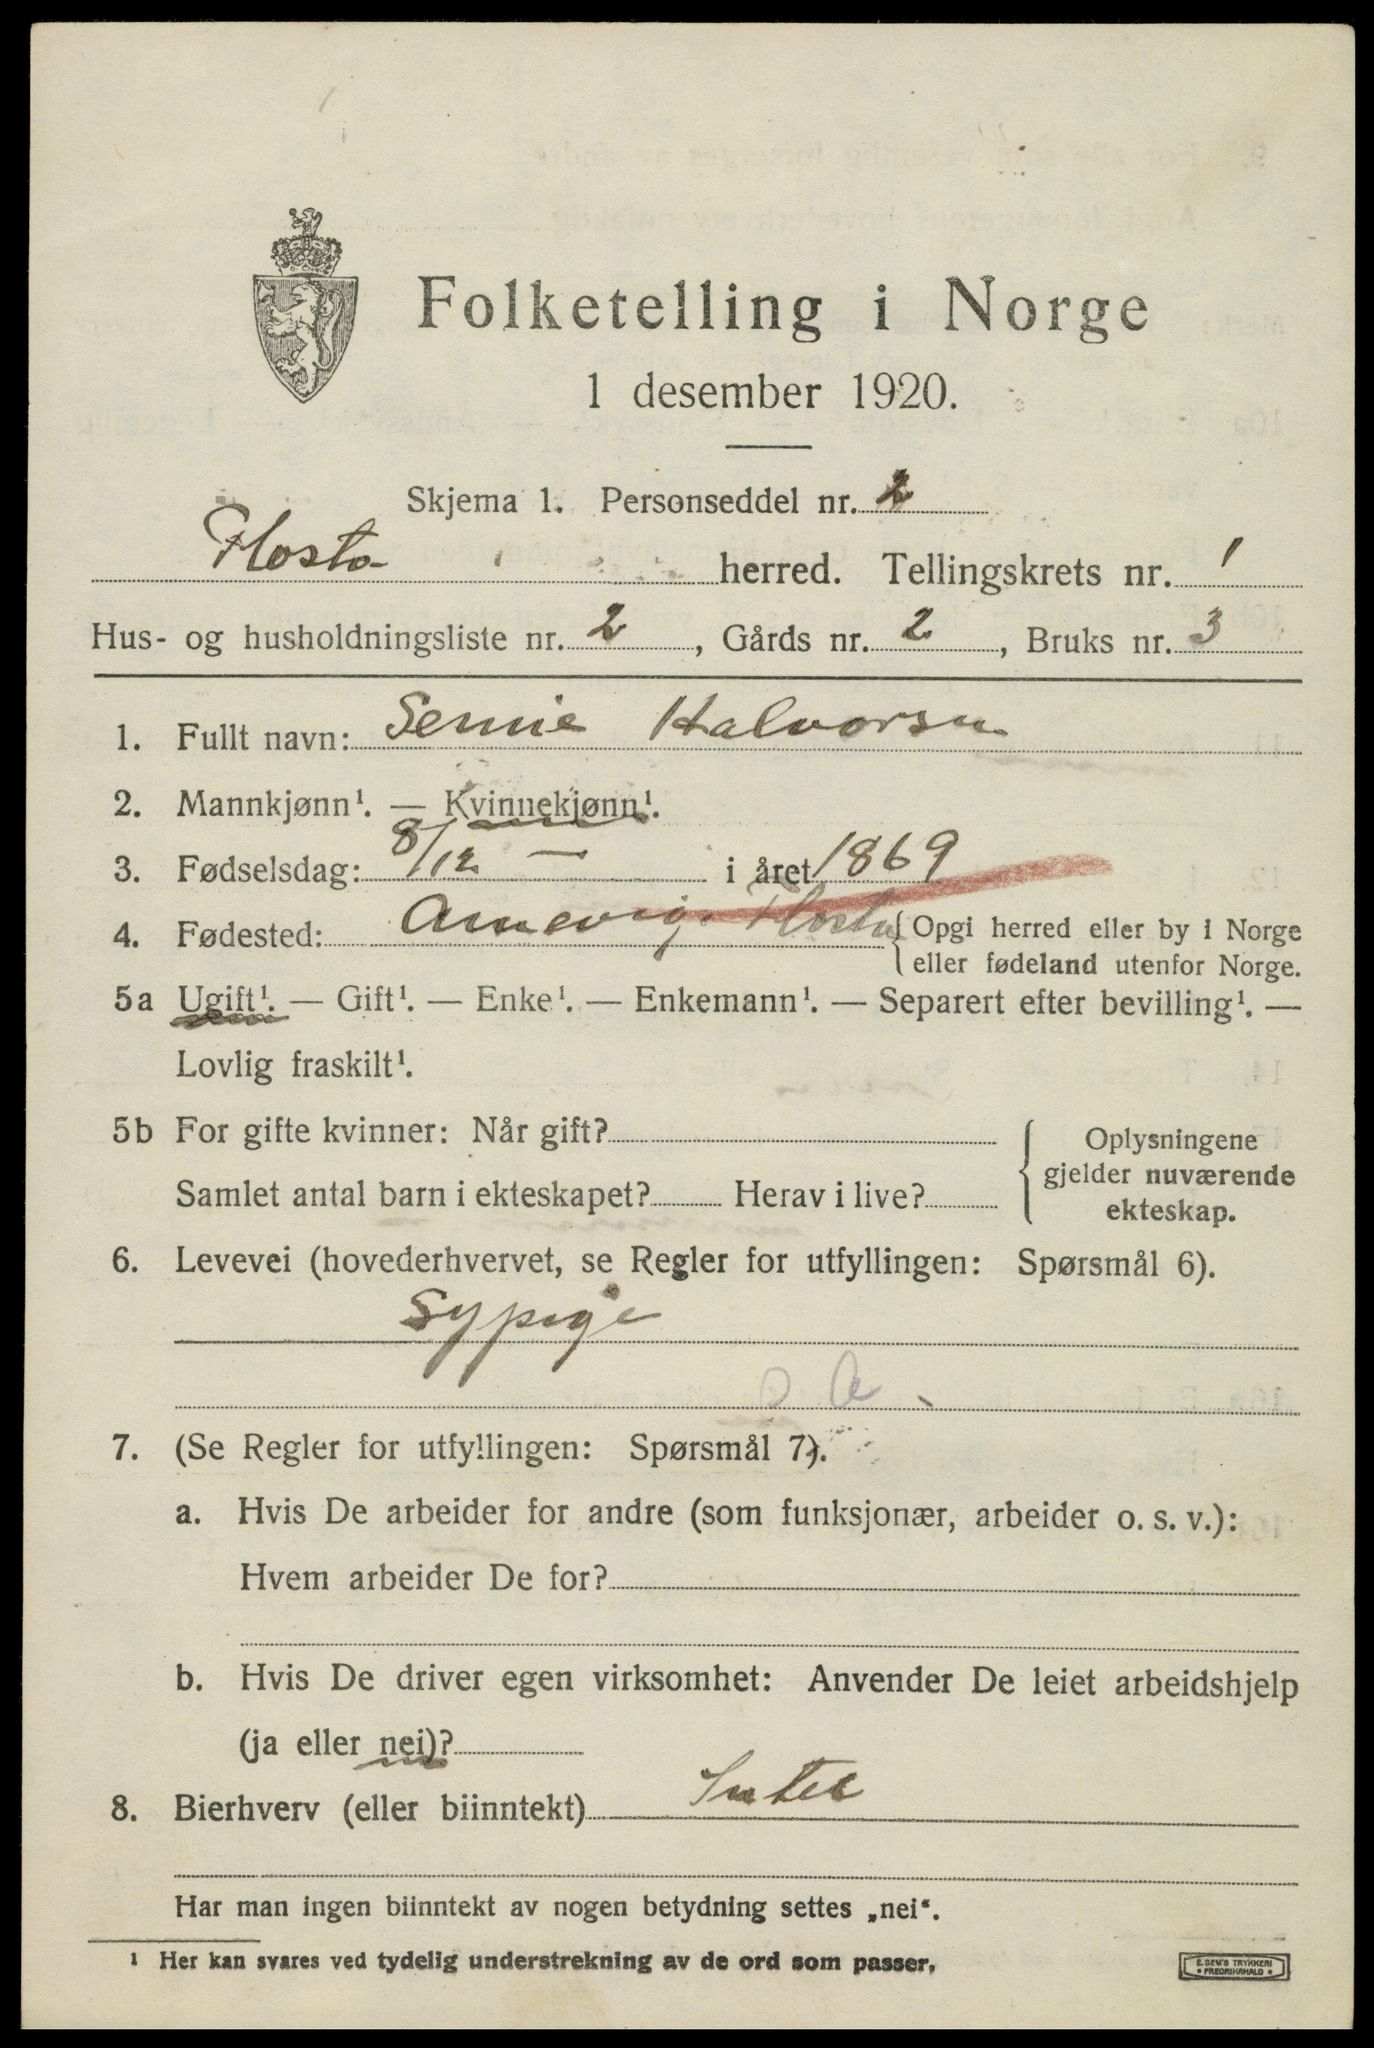 Folketelling i Norge
1 desember 1920.
Skjema 1. Personseddel nr. 2
Flosta herred. Tellingskrets nr. 1
Hus- og husholdningsliste nr. 2, Gårds nr. 2, Bruks nr. 3
1. Fullt navn: Semie Halvorsen
2. Mannkjønn¹. — Kvinnekjønn¹.
3. Fødselsdag: 8/12 — i året 1869
4. Fødested: Arnevig. Flosta { Opgi herred eller by i Norge
eller fødeland utenfor Norge.
5a Ugift¹. — Gift¹. — Enke¹. — Enkemann¹. — Separert efter bevilling¹. —
Lovlig fraskilt¹.
5b For gifte kvinner: Når gift?
Samlet antal barn i ekteskapet? Herav i live?
{ Oplysningene
gjelder nuværende
ekteskap.
6. Levevei (hovederhvervet, se Regler for utfyllingen: Spørsmål 6).
Sypige
7. (Se Regler for utfyllingen: Spørsmål 7).
a. Hvis De arbeider for andre (som funksjonær, arbeider o. s. v.):
Hvem arbeider De for?
b. Hvis De driver egen virksomhet: Anvender De leiet arbeidshjelp
(ja eller nei)?
8. Bierhverv (eller biinntekt) Intet
Har man ingen biinntekt av nogen betydning settes „nei“.
¹ Her kan svares ved tydelig understrekning av de ord som passer.
E. SEM'S TRYKKERI
• FREDRIKSHALD •